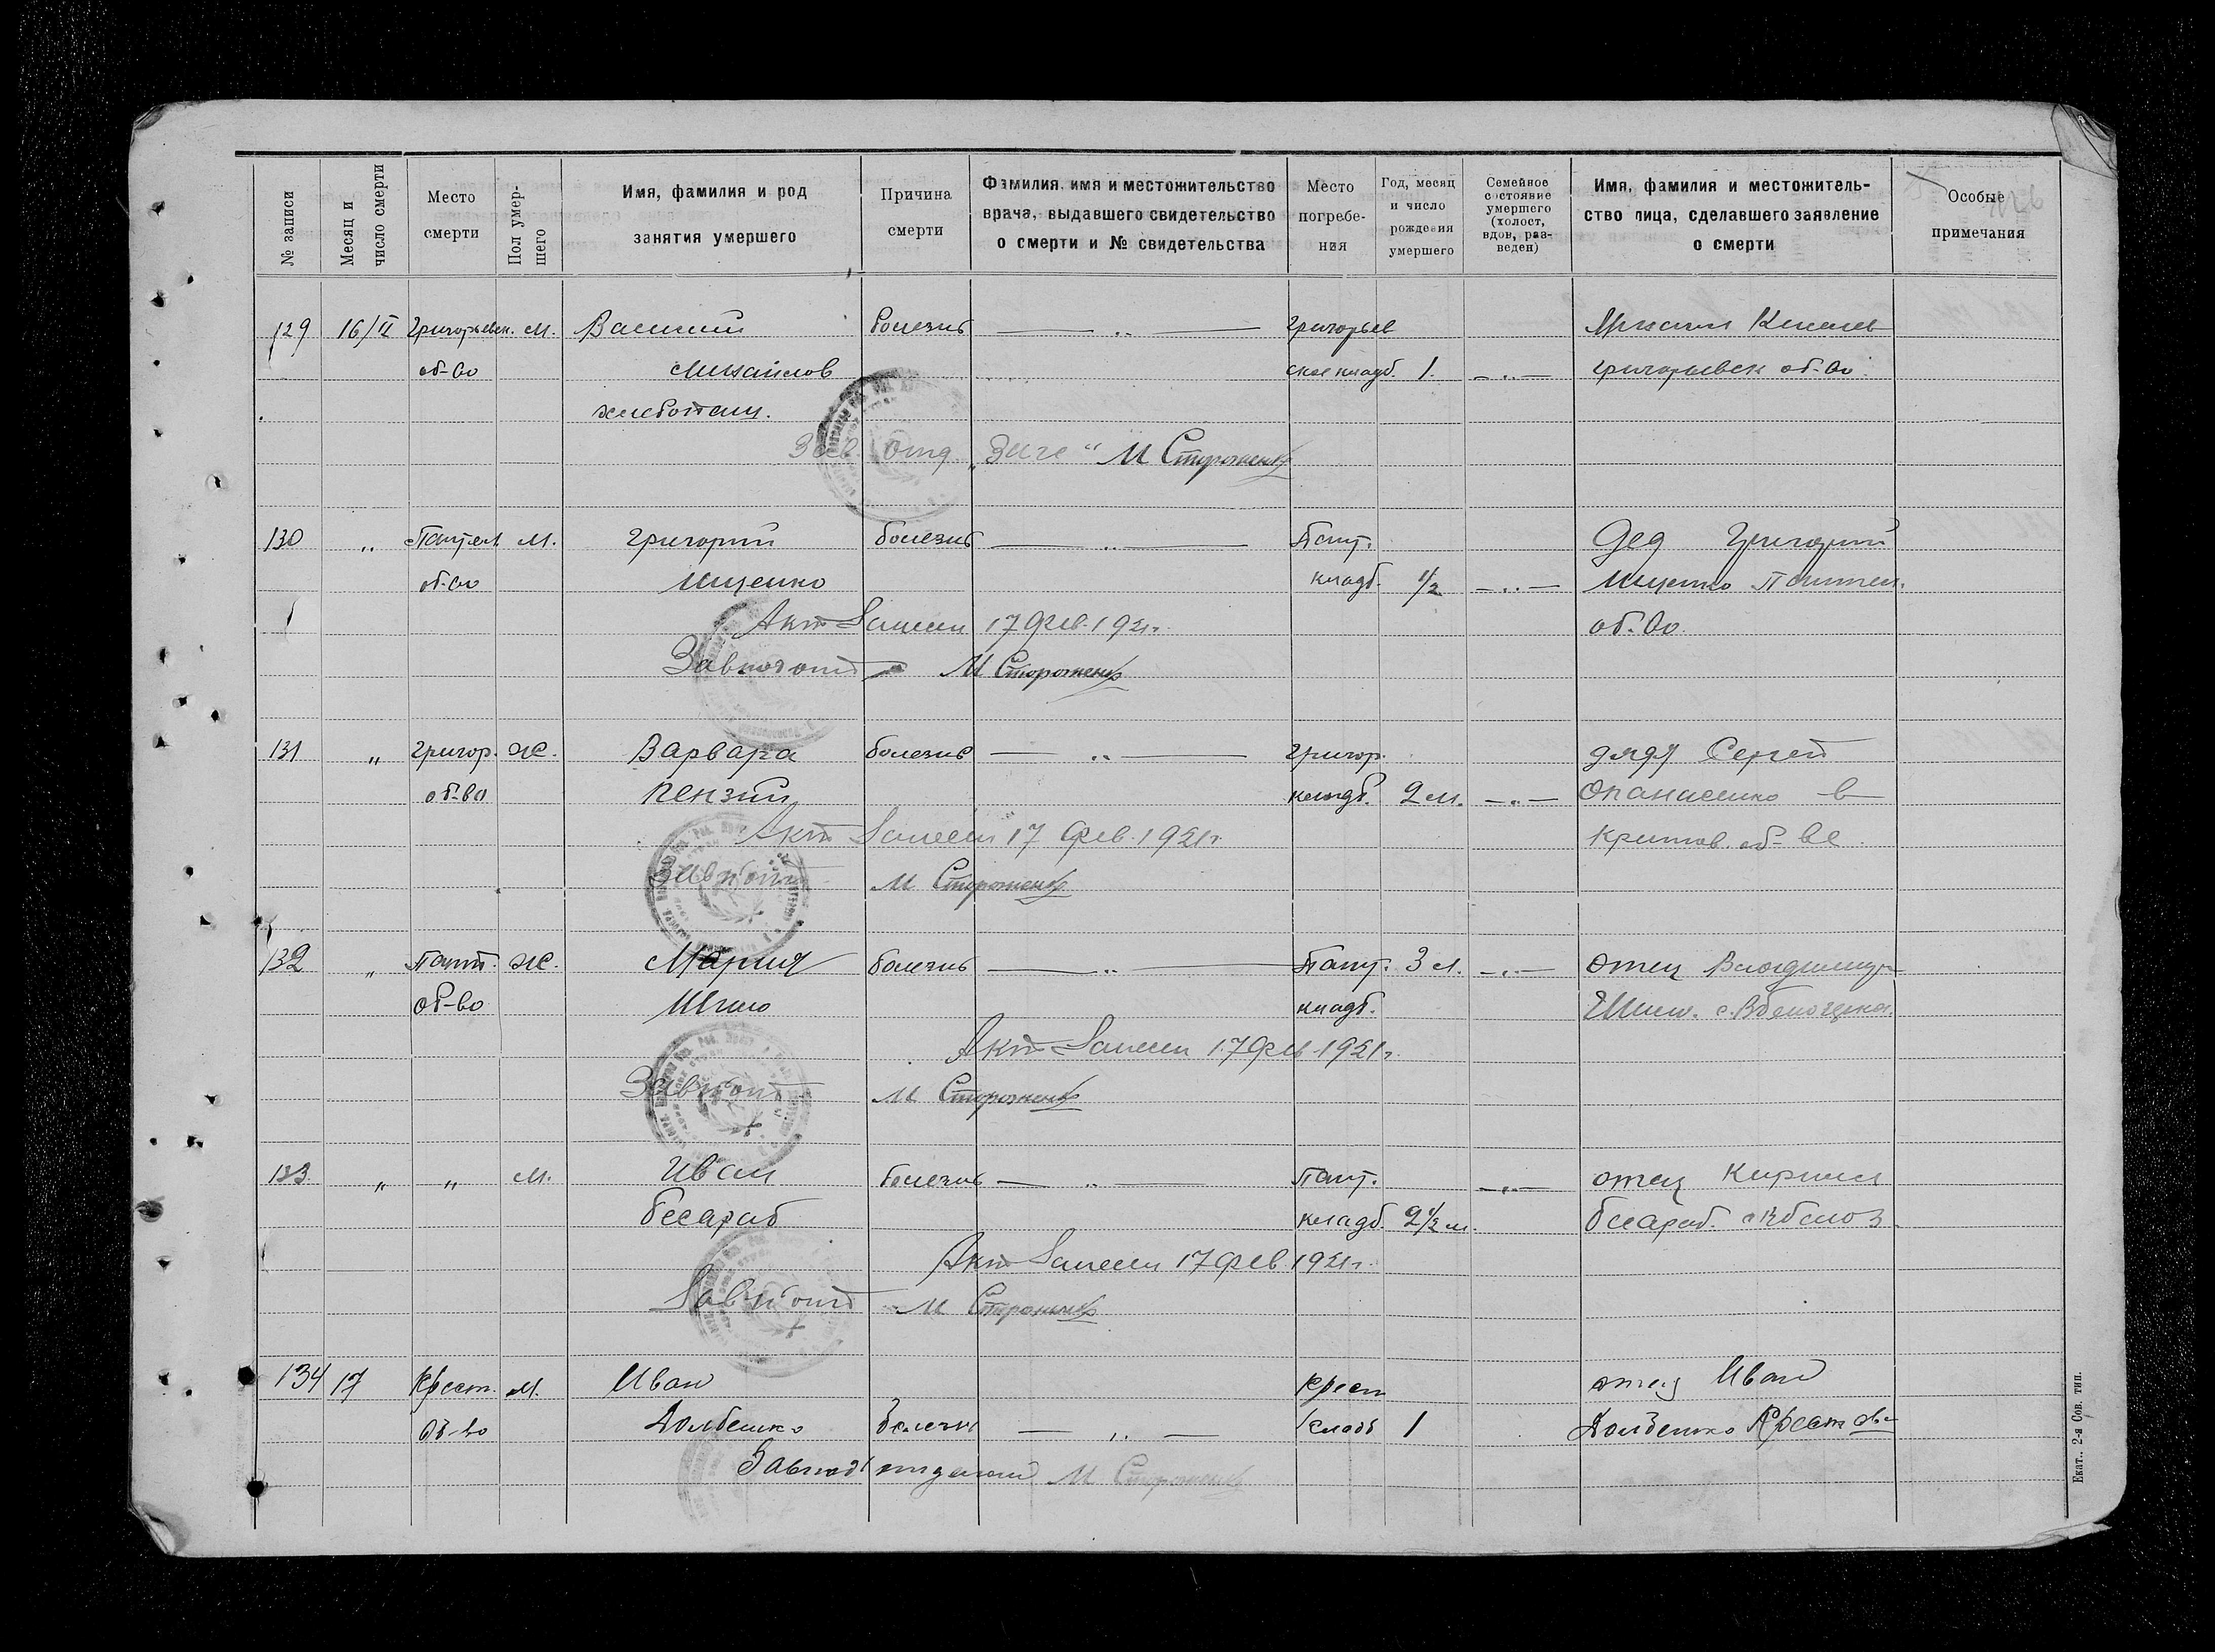 № записи
Месяц и число смерти
Место смерти
Пол умер-шего
Имя, фамилия и род занятия умершего
Причина смерти
Фамилия, имя и местожительство врача, выдавшего свидетельство о смерти и № свидетельства
Место погребе-ния
Год, месяц и число рождения умершего
Семейное состояние умершего (холост, вдов, раз-веден)
Имя, фамилия и местожитель-ство лица, сделавшего заявление о смерти
Особые примечания
129 16/II Григорьевск. М. Василий болезнь — „ — Григорьев Михаил
об-во Михайлов ское кладб. 1. — „ — Григорьевск об-во.
хлебопаш.
Зав. отд. „Загс“ М Стороженко
130 „ Пантел. М. Григорий болезнь — „ — Пант. Дед Григорий
об-во Ищенко кладб. 1/2 — „ — Ищенко Пантел.
Акт Записан 17 фев. 1921 г. об-во.
Завподотд М Стороженко
131 „ Григор. Ж. Варвара болезнь — „ — Григор. дядя Сергей
об-во Кензик кладб. 2 м. — „ — Опанасенко в
Акт Записан 17 фев. 1921 г. об-ве
Завпотд М Стороженко
132 „ Пант. Ж. Мария болезнь — „ — Пант. 3 м. — „ — отец Владимир
об-во кладб.
Акт Записан 17 фев 1921 г.
Завпотд М Стороженко
133. „ „ М. Иван болезнь — „ — Пант. — „ — отец Кирилл
Бесараб кладб. 2 1/2 м. Бесараб.
Акт Записан 17 фев. 1921 г.
Завпотд М Стороженко
134 17 Крест. М. Иван Крест отец Иван
об-во Долбенко болезнь — „ — кладб 1 Долбенко Крест об-
Завподотделом М Стороженко
Екат. 2-я Сов. тип.